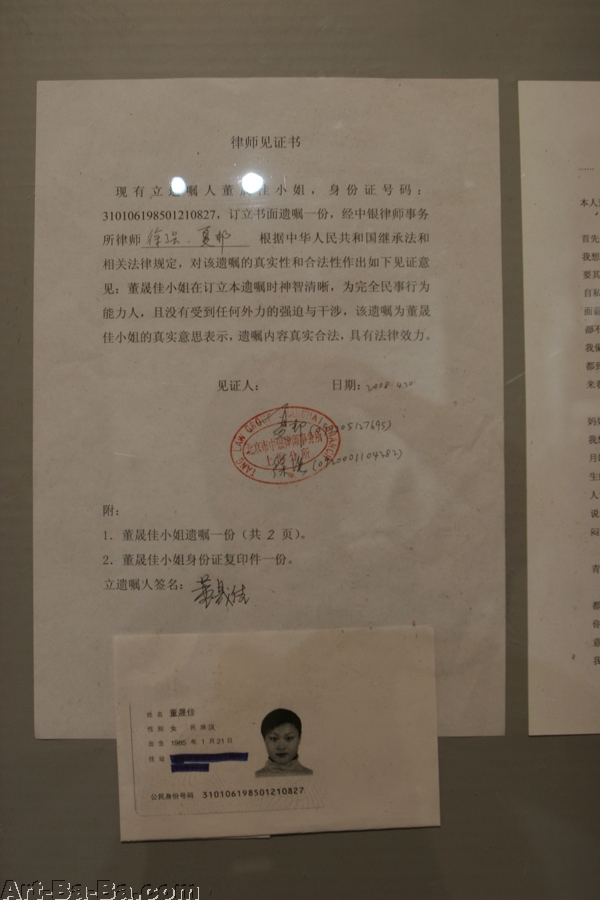 律师见证书
现有立遗嘱人董晟佳小姐，身份证号码：
310106198501210827，订立书面遗嘱一份，经中银律师事务
所律师 根据中华人民共和国继承法和
相关法律规定，对该遗嘱的真实性和合法性作出如下见证意
见：董晟佳小姐在订立本遗嘱时神智清晰，为完全民事行为
能力人，且没有受到任何外力的强迫与干涉，该遗嘱为董晟
佳小姐的真实意思表示，遗嘱内容真实合法，具有法律效力。
见证人： 日期：
TANG LAW GROUP BRANCH
北京市中银律师事务所
附：
1．董晟佳小姐遗嘱一份（共 2 页）。
2．董晟佳小姐身份证复印件一份。
立遗嘱人签名：董晟佳
姓名 董晟佳
性别 女 民族 汉
出生 1985 年 1 月 21 日
住址
公民身份号码 310106198501210827
……
本人
首先
我想
要其
自私
都不
都到
来
我想
月
生
人
说
闷
青
都
我
Art-Ba-Ba.com